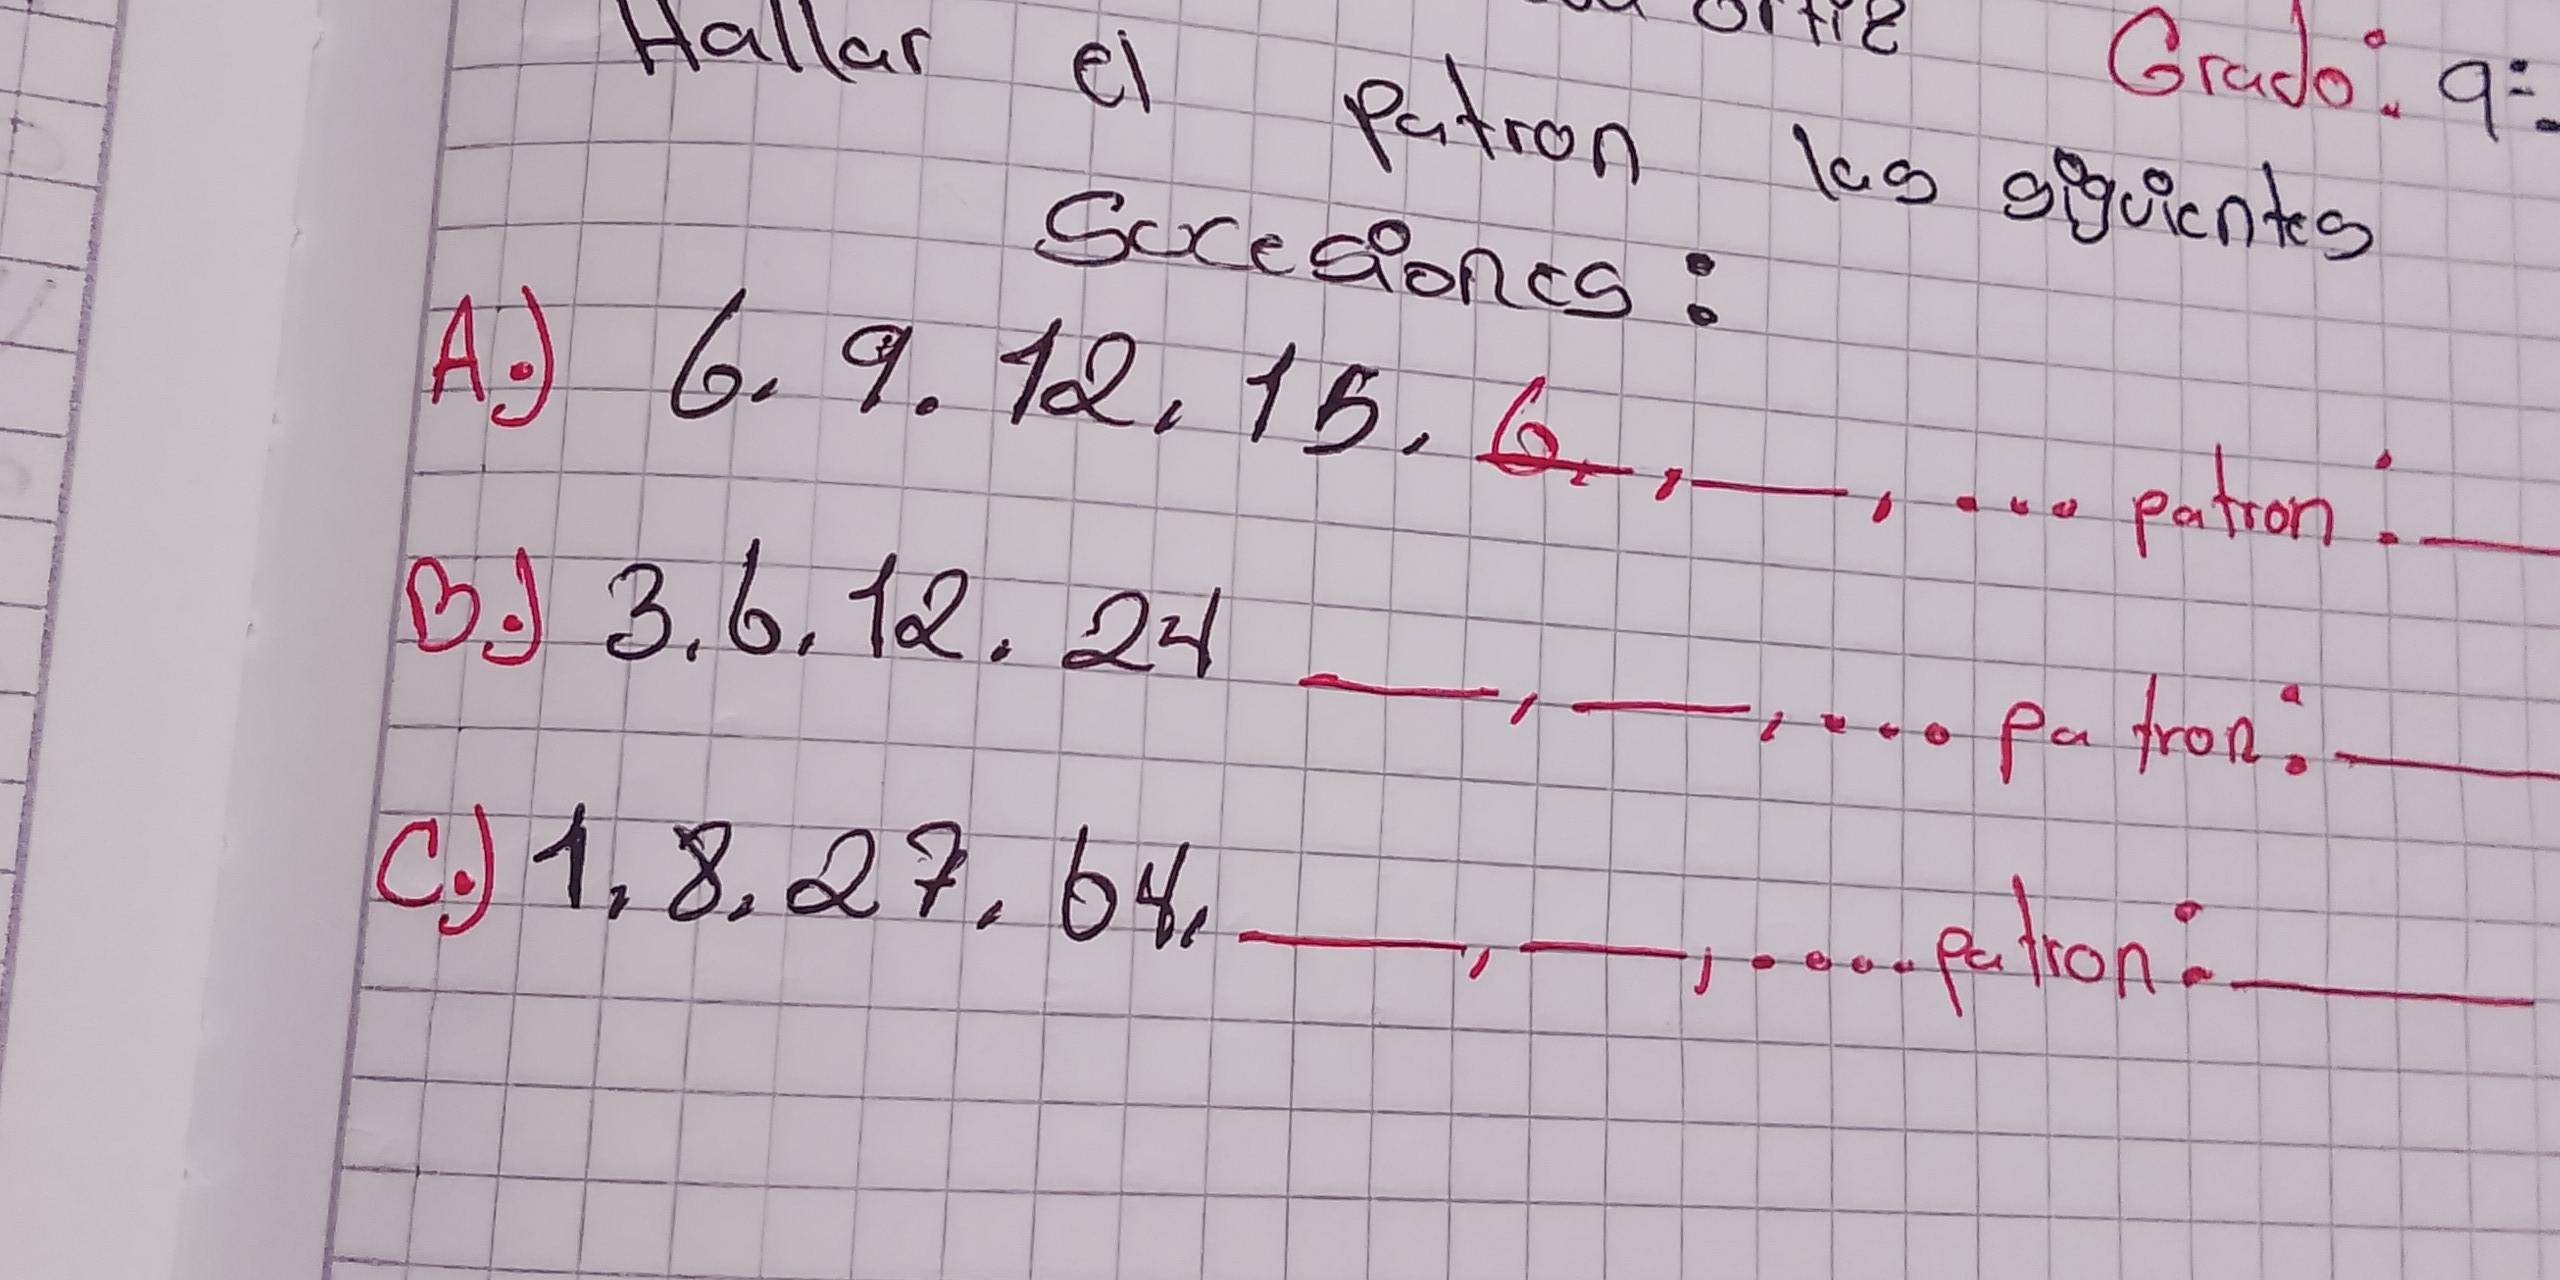 ortiz Grado: 9º
Hallar el patron las siguientes
Sucesiones:
A.) 6. 9. 12, 15, 6. , ___, ... patron: ___
B.) 3, 6, 12. 24 ___, ___, ... patron: ___
C.) 1, 8, 27, 64, ___, ___, .... patron: ___